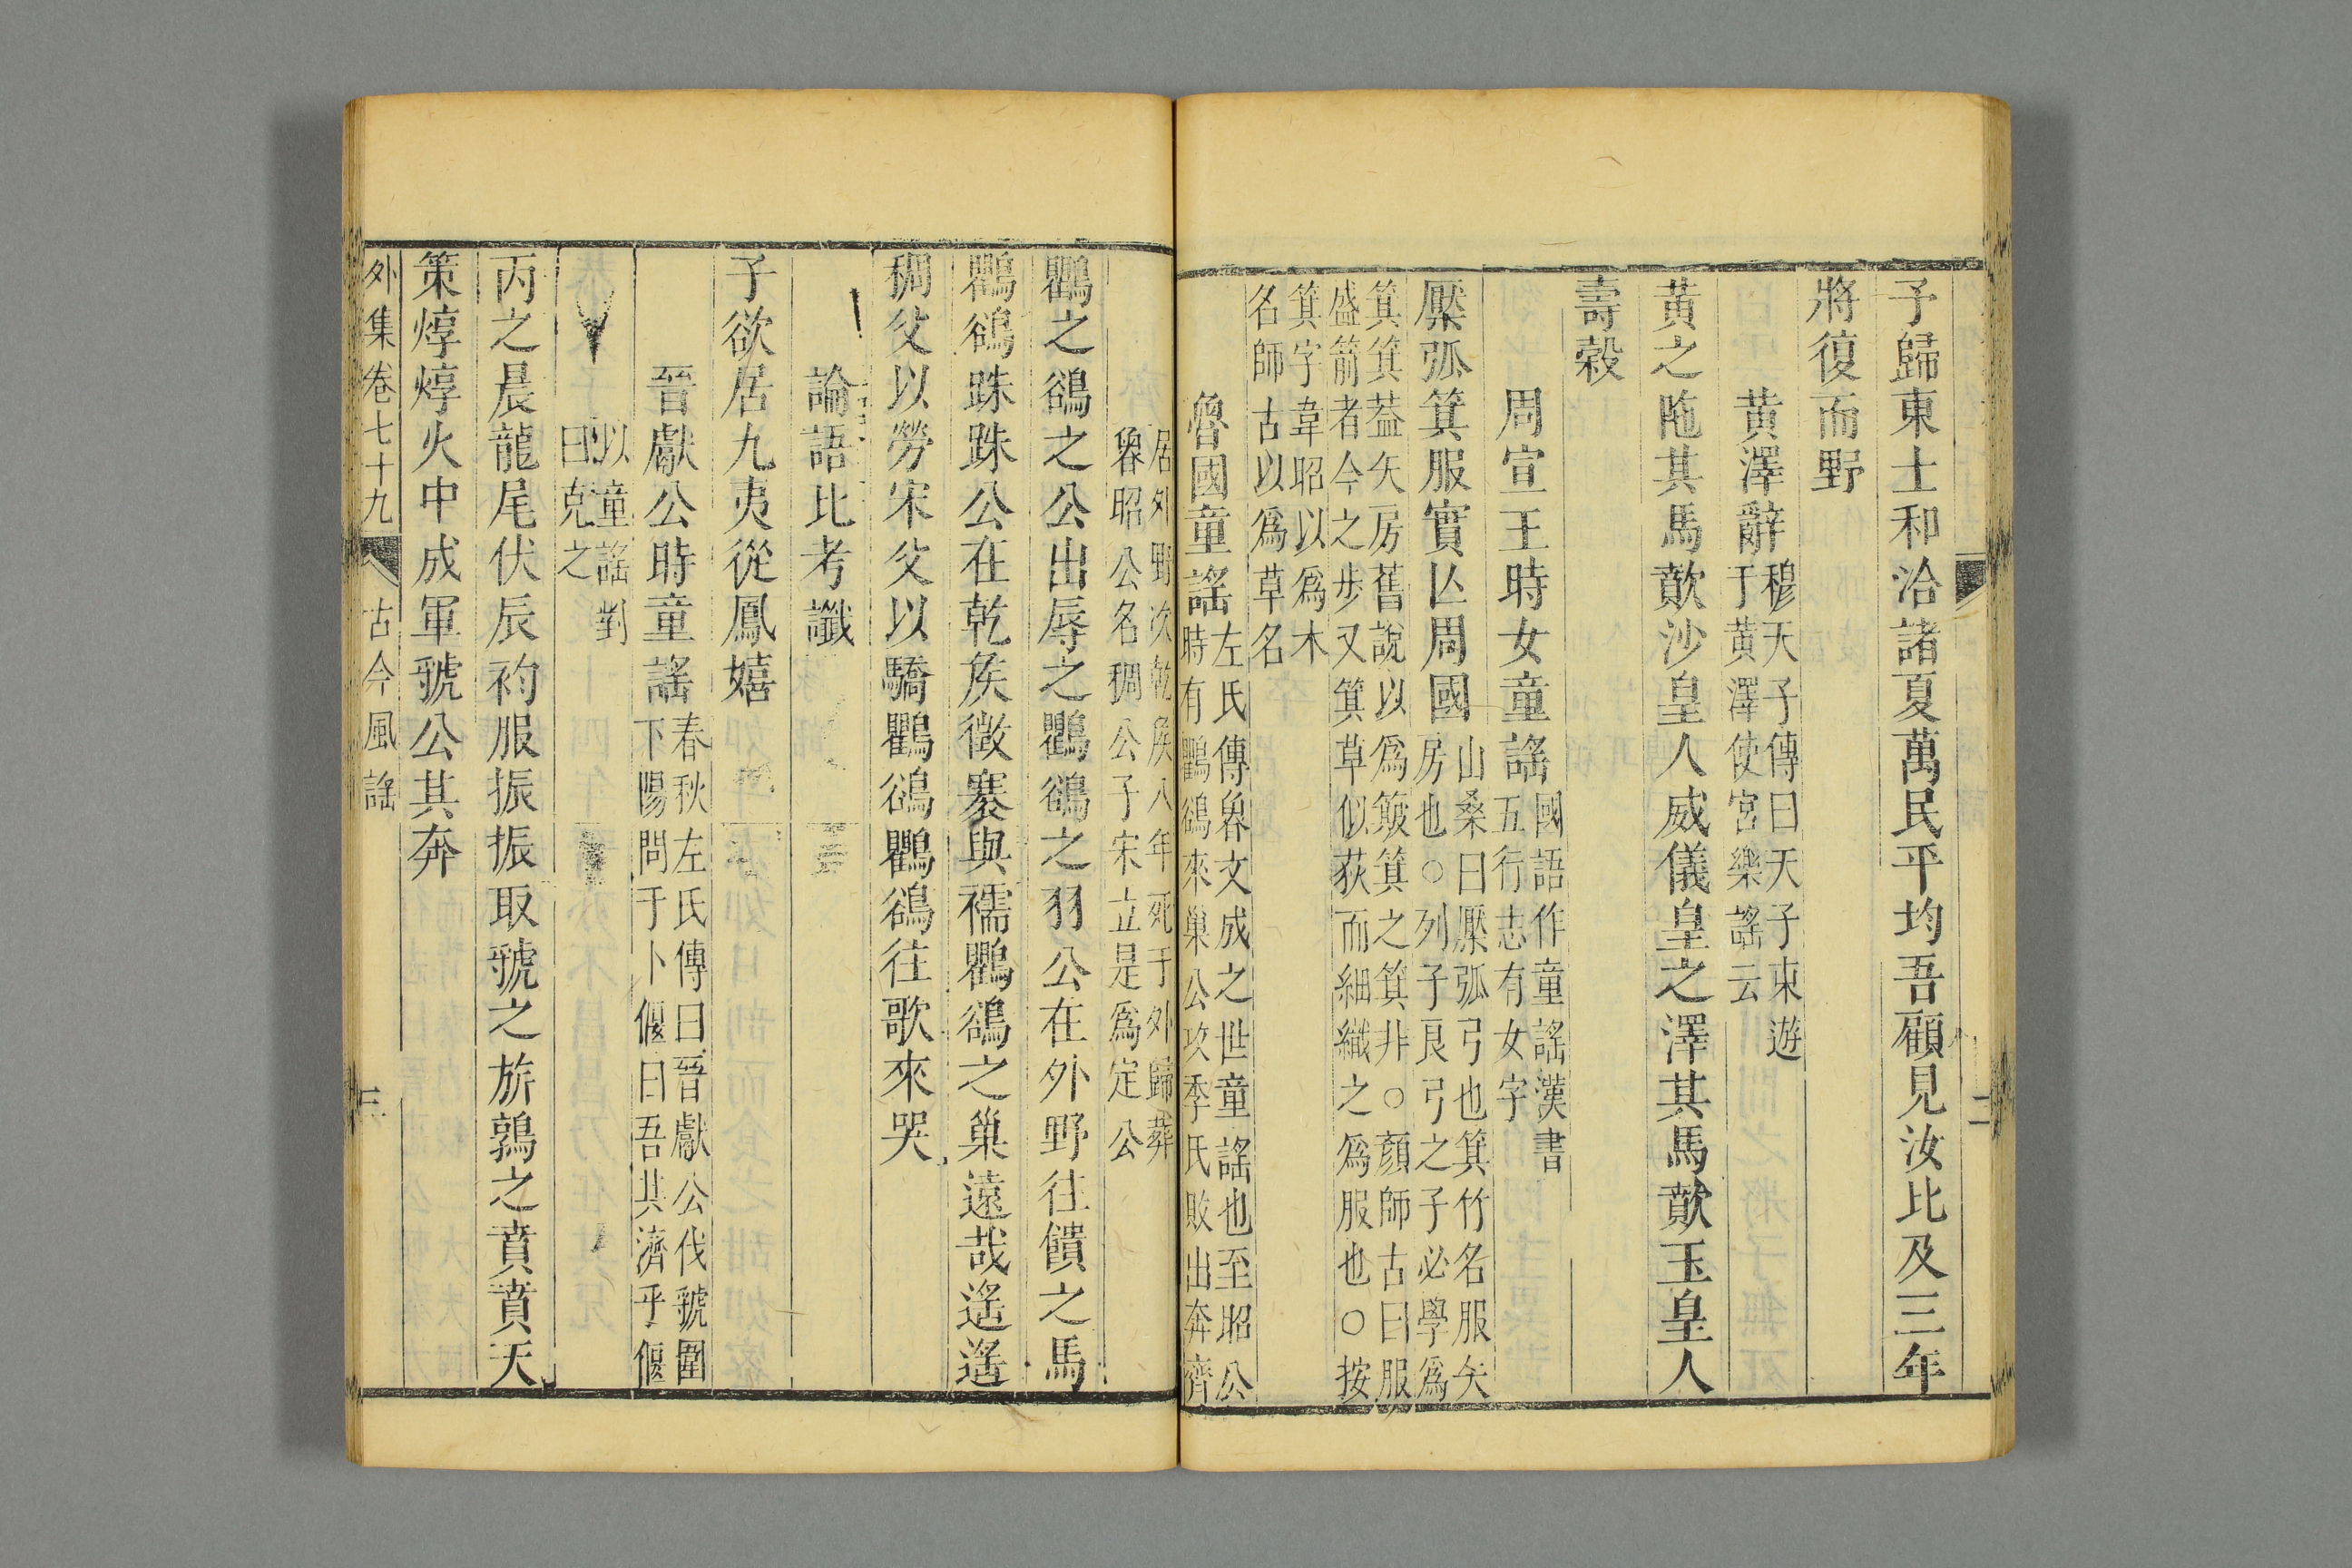 二
予歸東土和洽諸夏萬民平均吾顧見汝比及三年
將復而野
黃澤辭
穆天子傳曰天子東遊
于黃澤使宮樂謠云
黃之陁其馬歕沙皇人威儀皇之澤其馬歕玉皇人
壽穀
周宣王時女童謠
國語作童謠漢書
五行志有女字
檿弧箕服實亾周國
山桑曰檿弧弓也箕竹名服矢
房也○列子良弓之子必學爲
箕箕葢矢房舊說以爲簸箕之箕非○顏師古曰服
盛箭者今之步又箕草似荻而細織之爲服也○按
箕字韋昭以爲木
名師古以爲草名
魯國童謠
左氏傳魯文成之世童謠也至昭公
時有鸜鵒來巢公攻季氏敗出奔齊
居外野次乾矦八年死于外歸葬
魯昭公名稠公子宋立是爲定公
鸜之鵒之公出辱之鸜鵒之羽公在外野往饋之馬
鸜鵒跦跦公在乾矦徵褰與襦鸜鵒之巢遠哉遙遙
稠父以勞宋父以驕鸜鵒鸜鵒往歌來哭
論語比考讖
子欲居九夷從鳳嬉
晉獻公時童謠
春秋左氏傳曰晉獻公伐虢圍
下陽問于卜偃曰吾其濟乎偃
以童謠對
曰克之
丙之晨龍尾伏辰袀服振振取虢之旂鶉之賁賁天
策焞焞火中成軍虢公其奔
外集卷七十九 古今風謠 三